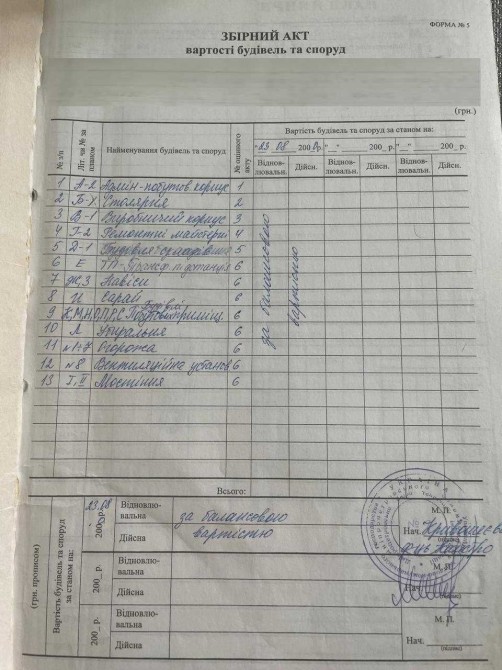 ФОРМА № 5
ЗБІРНИЙ АКТ
вартості будівель та споруд
(грн.)
№ з/п
Літ. чи № за планом
Найменування будівель та споруд
№ оціночного акту
Вартість будівель та споруд за станом на:
"23.08 200 р. "__" 200_ р. "__" 200_ р.
Відновлювальн. Дійсн. Відновлювальн. Дійсн. Відновлювальн. Дійсн.
1 А-2 Адмін-побутов. корпус 1
2 Б-Х Столярня 2
3 В-1 Виробничий корпус 3
4 Г-2 Ремонтні майстерні 4
5 Д-1 Будівля 5
6 Е ТП-Трансф. підстанція 6
7 Ж,З Навіси 6
8 И Сарай 6
9 К,М,Н,О,П,Р,С Будівлі 6
10 Л Убиральня 6
11 №1-7 Огорожа 6
12 №8 Вентиляційна установ 6
13 І, ІІ Мостіння 6
за балансовою
вартістю
Всього:
(грн. прописом)
Вартість будівель та споруд за станом на:
23.08 200 р.
Відновлювальна
за балансовою
Дійсна
вартістю
М. П.
Нач.
(підпис)
200_ р.
Відновлювальна
Дійсна
М. П.
Нач.
(підпис)
200_ р.
Відновлювальна
Дійсна
М. П.
Нач.
(підпис)
УКРАЇНА